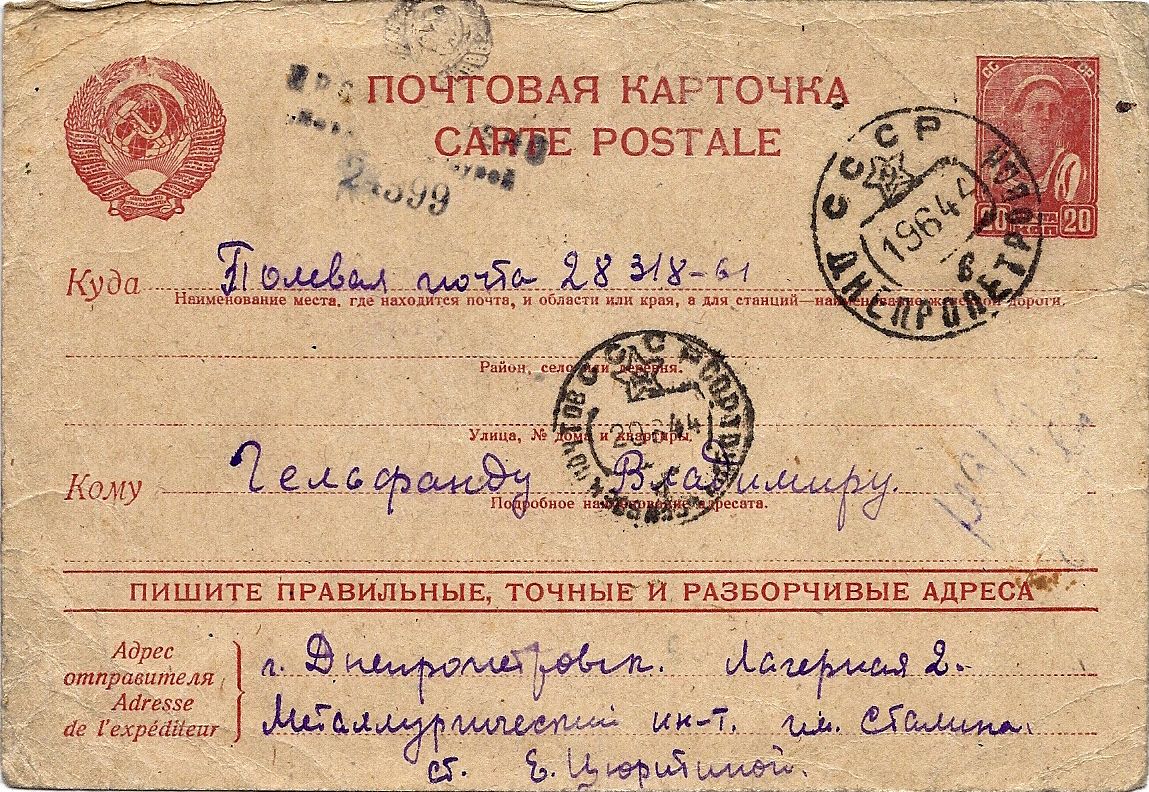 ПОЧТОВАЯ КАРТОЧКА
CARTE POSTALE
24399
СС СР
20 КОП 20
СССР
19644
6
ДНЕПРОПЕТРОВСК
Куда Полевая почта 28318-61
Наименование места, где находится почта, и области или края, а для станций—наименование железной дороги.
Район, село или деревня.
СССР
20644
Улица, № дома и квартиры.
Кому Гельфанду Владимиру.
Подробное наименование адресата.
ПИШИТЕ ПРАВИЛЬНЫЕ, ТОЧНЫЕ И РАЗБОРЧИВЫЕ АДРЕСА
Адрес отправителя
Adresse de l'expéditeur
г. Днепропетровск. Лагерная 2.
Металлургический ин-т. им. Сталина.
ст. Е. Цюритиной.